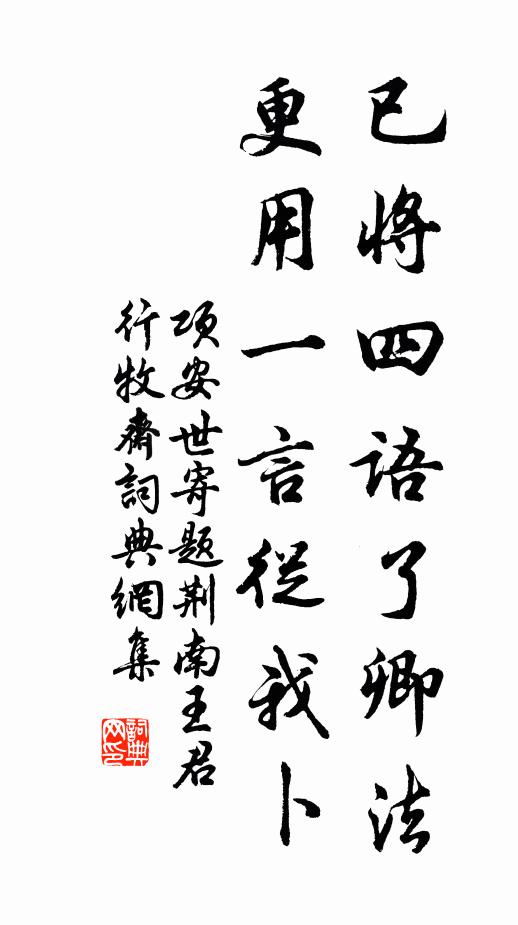 已將四語了卿法
更用一言從我卜
項安世寄題荆南王君
行牧齋詞典網集
詞典
网印